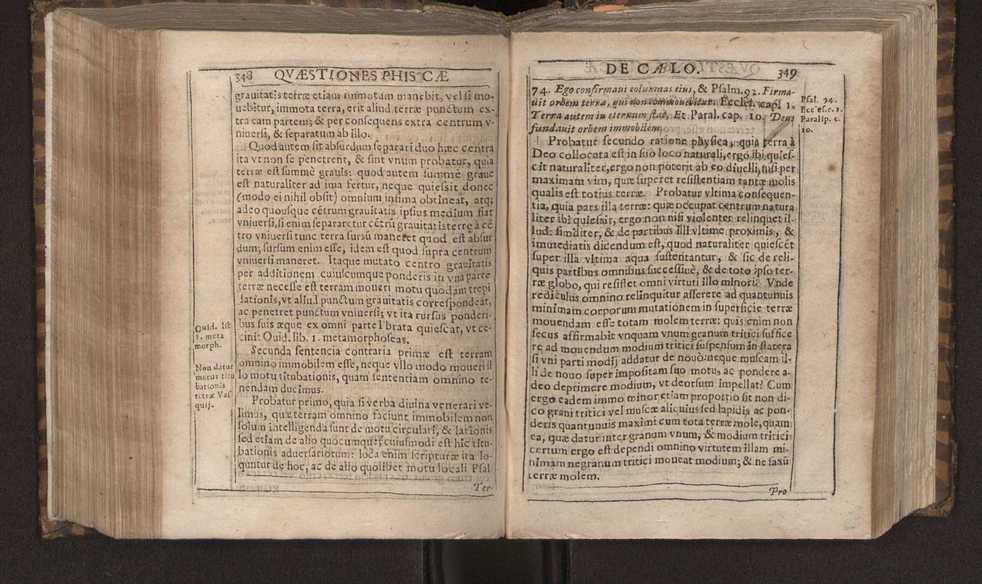 348 QVÆSTIONES PHISICÆ
grauitatis terræ etiam immotam manebit, vel si mo-
uebitur, immota terra, erit aliud terræ punctum ex-
tra eam partem; & per consequens extra centrum v-
niuersi, & separatum ab illo.
Quod autem sit absurdum separari duo hæc centra
ita vt non se penetrent, & sint vnum probatur, quia
terræ est summè grauis: quod autem summè graue
est naturaliter ad ima fertur, neque quiescit donec
(modo ei nihil obsit) omnium infima obtineat, atq;
adeo quousque cētrum grauitatis ipsius medium fiat
vniuersi, si enim separaretur cētrū grauitatis terræ à cē
tro vniuersi tunc terra sursū maneret quod est absur
dum; sursum enim esse, idem est quod supra centrum
vniuersi maneret. Itaque mutato centro grauitatis
per additionem cuiuscumque ponderis in vna parte
terræ necesse est terram moueri motu quodam trepi
dationis, vt aliud punctum grauitatis correspondeat,
ac penetret punctum vniuersi; vt ita rursus ponderi-
bus suis æque ex omni parte librata quiescat, vt ce-
cinit Ouid. lib. 1. metamorphoseas.
Ouid. lib
1. meta
morph.
Secunda sentencia contraria primæ est terram
omnino immobilem esse, neque vllo modo moueri il
lo motu titubationis, quam sententiam omnino te-
nendam ducimus.
Non datur
motus titu
bationis
terræ Vas
quij.
Probatur primo, quia si verba diuina venerari ve-
limus, quæ terram omnino faciunt immobilem non
solum intelligenda sunt de motu circulari, & lationis
sed etiam de alio quocumque; cuiusmodi est hic titu-
bationis aduersariorum: loca enim scripturæ ita lo-
quntur de hoc, ac de alio quolibet motu locali Psal
Ter
DE CÆLO. 349
74. Ego confirmaui columnas eius, & Psalm. 92. Firma-
uit orbem terræ, qui non commouebitur. Eccles. capi 1.
Terra autem in æternum stat, Et Paral. cap. 10. Deus
fundauit orbem immobilem.
Psal. 94.
Eccles. c. 1.
Paralip. c.
10.
Probatur secundo ratione physica, quia terra à
Deo collocata est in suo loco naturali, ergo ibi quies-
cit naturaliter, ergo non poterit ab eo diuelli, nisi per
maximam vim, quæ superet resistentiam tantæ molis
qualis est totius terræ. Probatur vltima consequen-
tia, quia pars illa terræ: quæ occupat centrum natura
liter ibi quiescit, ergo non nisi violenter relinquet il-
lud: similiter, & de partibus illi vltime proximis, &
immediatis dicendum est, quod naturaliter quiescēt
super illa vltima aqua sustentantur, & sic de reli-
quis partibus omnibus successiuè, & de toto ipso ter-
ræ globo, qui resistet omni virtuti illo minori. Vnde
rediculus omnino relinquitur asserere ad quantumuis
minimam corporum mutationem in superficie terræ
mouendam esse totam molem terræ: quis enim non
secus affirmabit vnquam vnum granum tritici suffice
re ad mouendum modium tritici suspensum in statera
si vni parti modij addatur de nouo: neque muscam il-
li de nouo super impositam suo motu, ac pondere a-
deo deprimere modium, vt deorsum impellat? Cum
ergo eadem immo minor etiam proportio sit non di-
co grani tritici vel muscæ alicuius sed lapidis ac pon-
deris quantumuis maximi cum tota terræ mole, quam
ea, quæ datur inter granum vnum, & modium tritici:
certum ergo est dependi omnino virtutem illam mi-
nimam ne granum tritici moueat modium; & ne saxū
terræ molem.
Pro